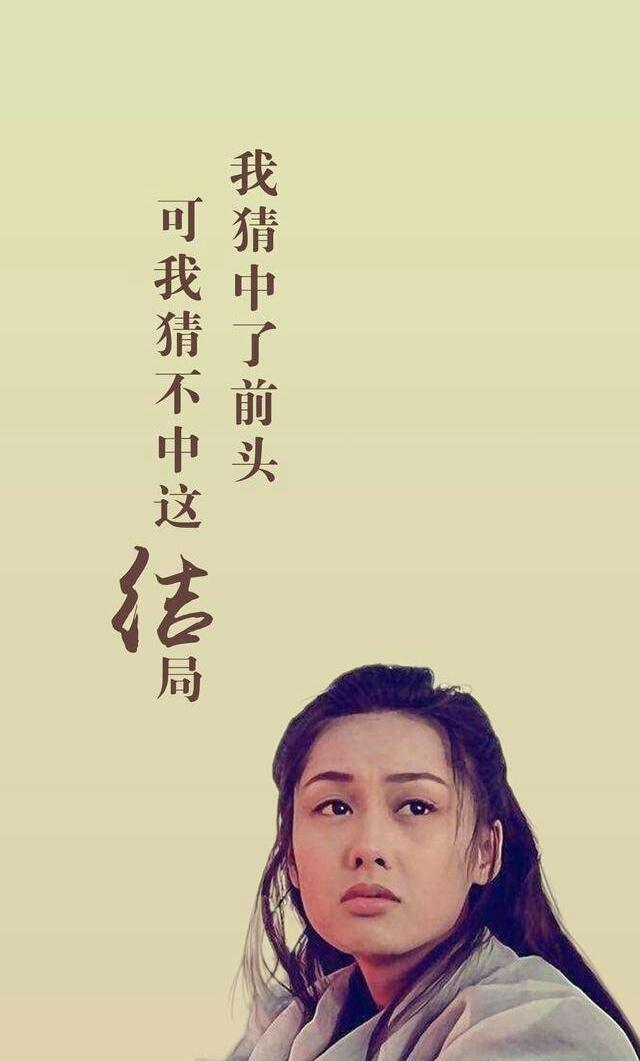 我猜中了前头
可我猜不中这结局